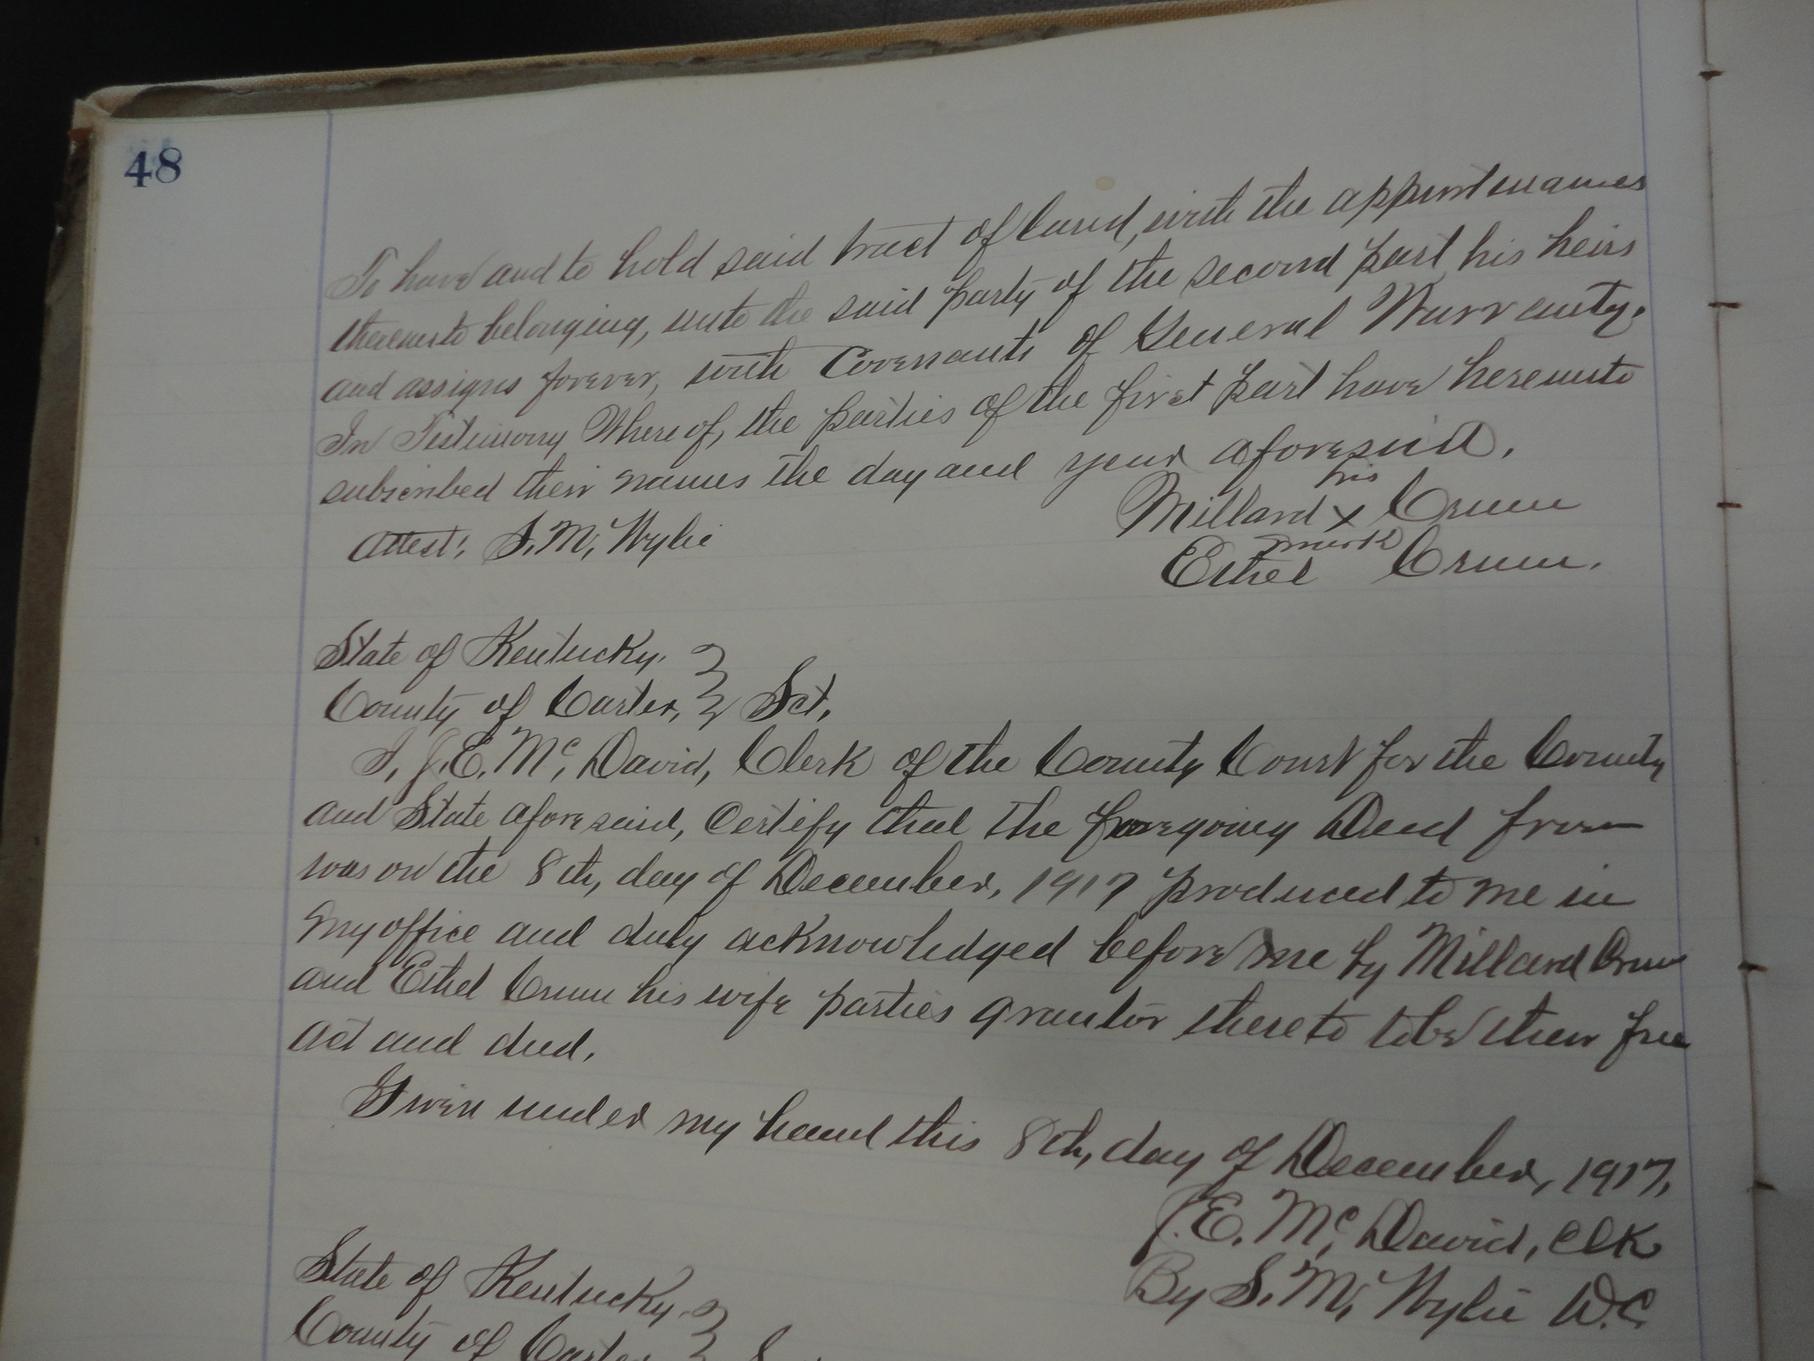 48
To have and to hold said tract of land, with the appurtenances
thereunto belonging, unto the said party of the second part his heirs
and assigns forever, with Covenants of General Warranty.
In Testimony Whereof, the parties of the first part have hereunto
subscribed their names the day and year aforesaid.
his
Attest: S. M. Wylie Millard x Crum
mark
Ethel Crum.
State of Kentucky, }
County of Carter, } Sct.
I, J. E. Mc. David, Clerk of the County Court for the County
and State aforesaid, Certify that the foregoing Deed from
was on the 8th, day of December, 1917 produced to me in
my office and duly acknowledged before me by Millard Crum
and Ethel Crum his wife parties grantor thereto to be their free
act and deed.
Given under my hand this 8th, day of December, 1917,
J. E. Mc. David, Clk
By S. M. Wylie D.C.
State of Kentucky, }
County of Carter }